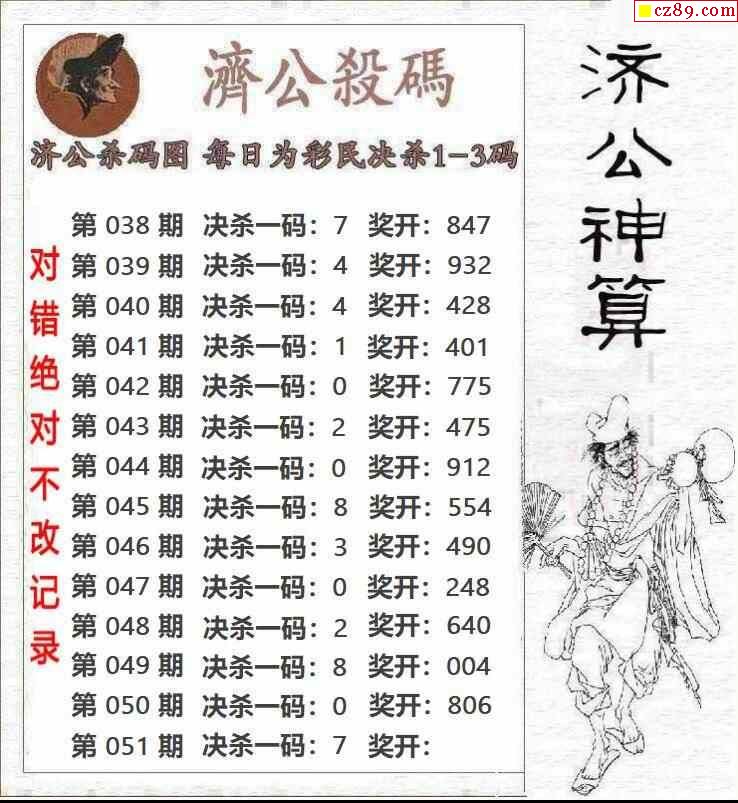 cz89.com
濟公殺碼
济公杀码图 每日为彩民决杀1-3码
第 038 期 决杀一码：7 奖开：847
第 039 期 决杀一码：4 奖开：932
第 040 期 决杀一码：4 奖开：428
第 041 期 决杀一码：1 奖开：401
第 042 期 决杀一码：0 奖开：775
第 043 期 决杀一码：2 奖开：475
第 044 期 决杀一码：0 奖开：912
第 045 期 决杀一码：8 奖开：554
第 046 期 决杀一码：3 奖开：490
第 047 期 决杀一码：0 奖开：248
第 048 期 决杀一码：2 奖开：640
第 049 期 决杀一码：8 奖开：004
第 050 期 决杀一码：0 奖开：806
第 051 期 决杀一码：7 奖开：
对错绝对不改记录
济公神算